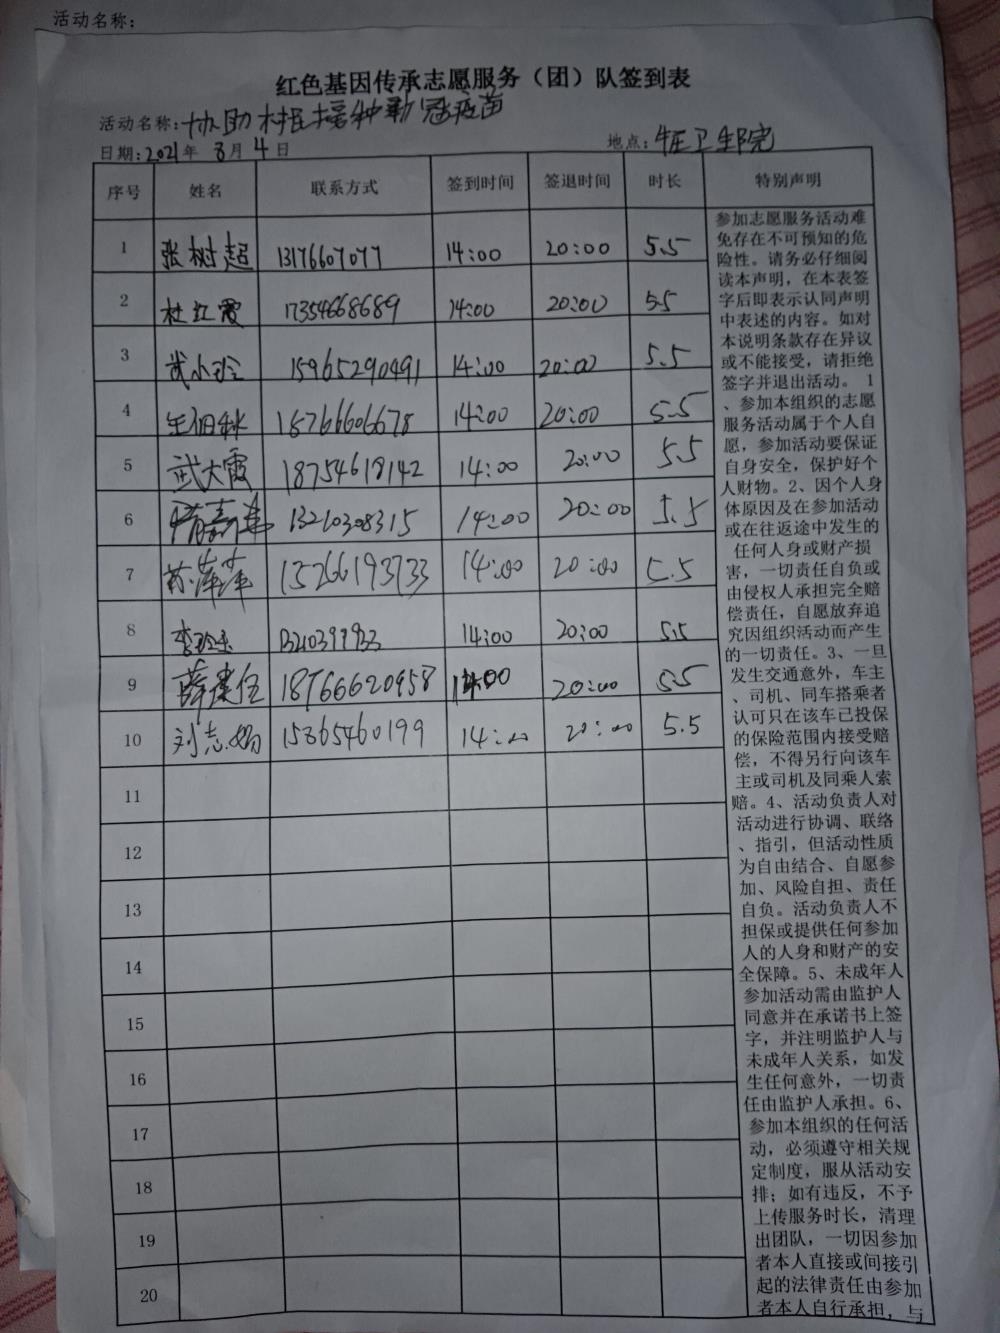 活动名称:
红色基因传承志愿服务（团）队签到表
活动名称:协助 接种新冠疫苗
日期:2021年 8月 4日 地点: 卫生院
序号 姓名 联系方式 签到时间 签退时间 时长 特别声明
1 张树超 14:00 20:00 5.5
2 杜红霞 17354668689 14:00 20:00 5.5
3 武小玲 15965290491 14:00 20:00 5.5
4 14:00 20:00 5.5
5 武大霞 18754618142 14:00 20:00 5.5
6 13210308315 14:00 20:00 5.5
7 苏萍萍 15266193733 14:00 20:00 5.5
8 14:00 20:00 5.5
9 18766620958 14:00 20:00 5.5
10 刘志娟 15865460199 14:00 20:00 5.5
11
12
13
14
15
16
17
18
19
20
参加志愿服务活动难
免存在不可预知的危
险性。请务必仔细阅
读本声明，在本表签
字后即表示认同声明
中表述的内容。如对
本说明条款存在异议
或不能接受，请拒绝
签字并退出活动。 1
、参加本组织的志愿
服务活动属于个人自
愿，参加活动要保证
自身安全，保护好个
人财物。2、因个人身
体原因及在参加活动
或在往返途中发生的
任何人身或财产损
害，一切责任自负或
由侵权人承担完全赔
偿责任，自愿放弃追
究因组织活动而产生
的一切责任。3、一旦
发生交通意外，车主
、司机、同车搭乘者
认可只在该车已投保
的保险范围内接受赔
偿，不得另行向该车
主或司机及同乘人索
赔。4、活动负责人对
活动进行协调、联络
、指引，但活动性质
为自由结合、自愿参
加、风险自担、责任
自负。活动负责人不
担保或提供任何参加
人的人身和财产的安
全保障。5、未成年人
参加活动需由监护人
同意并在承诺书上签
字，并注明监护人与
未成年人关系，如发
生任何意外，一切责
任由监护人承担。6、
参加本组织的任何活
动，必须遵守相关规
定制度，服从活动安
排；如有违反，不予
上传服务时长，清理
出团队，一切因参加
者本人直接或间接引
起的法律责任由参加
者本人自行承担，与